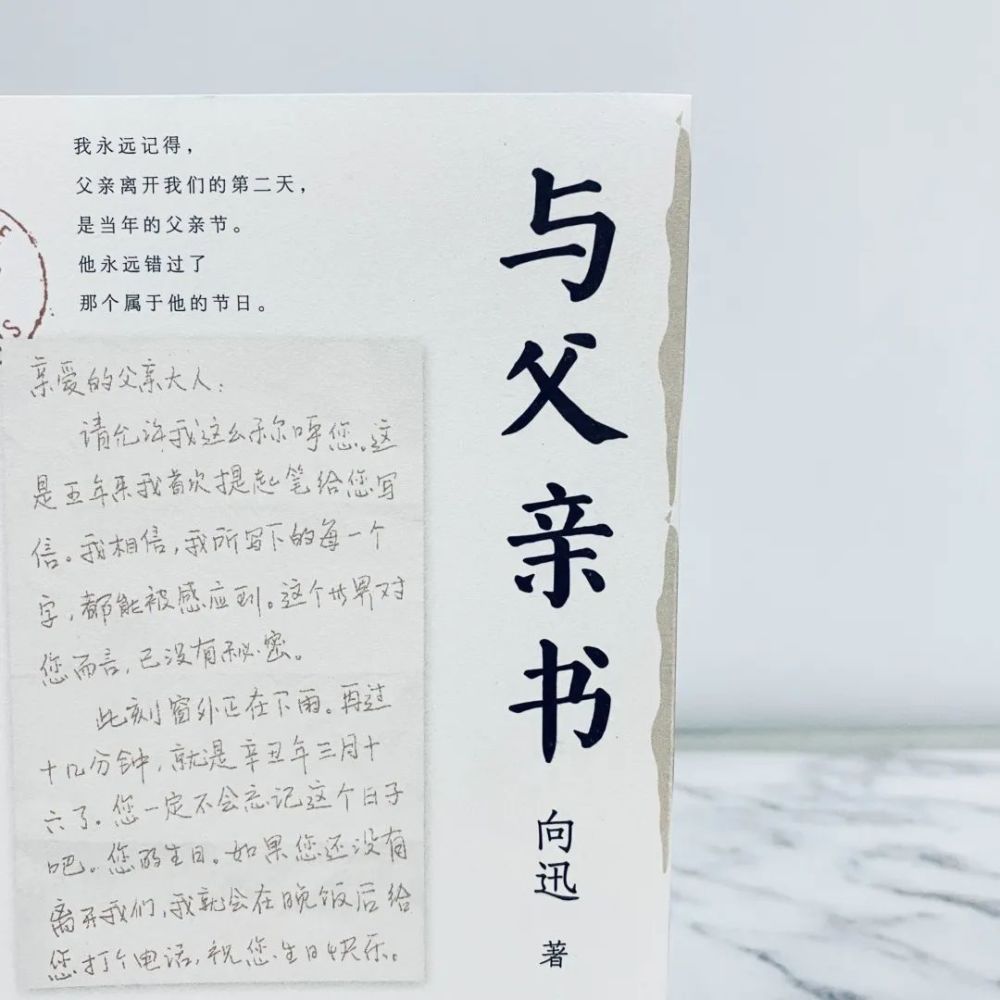 我永远记得，
父亲离开我们的第二天，
是当年的父亲节。
他永远错过了
那个属于他的节日。
与父亲书
向迅
著
亲爱的父亲大人：
请允许我这么称呼您。这
是五年来我首次提起笔给您写
信。我相信，我所写下的每一个
字，都能被感应到。这个世界对
您而言，已没有秘密。
此刻窗外正在下雨。再过
十几分钟，就是辛丑年三月十
六了。您一定不会忘记这个日子
吧。您的生日。如果您还没有
离开我们，我就会在晚饭后给
您打个电话，祝您生日快乐。